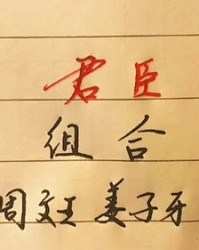 君臣
组合
周文王姜子牙